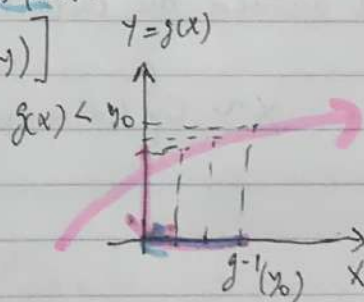 Y = g(x)
y)]
g(x) < y₀
g⁻¹(y₀)
X